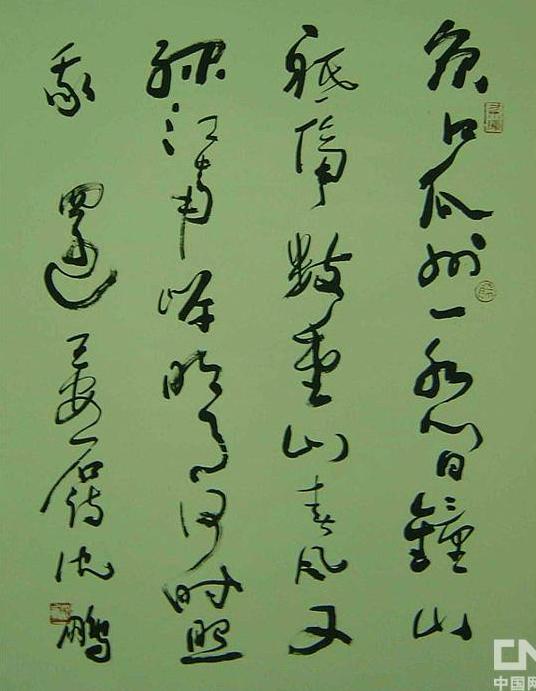 京口瓜洲一水间鐘山
祇隔数重山春风又
绿江南岸明月何时照
我還王安石诗沈鹏
CN
中国网